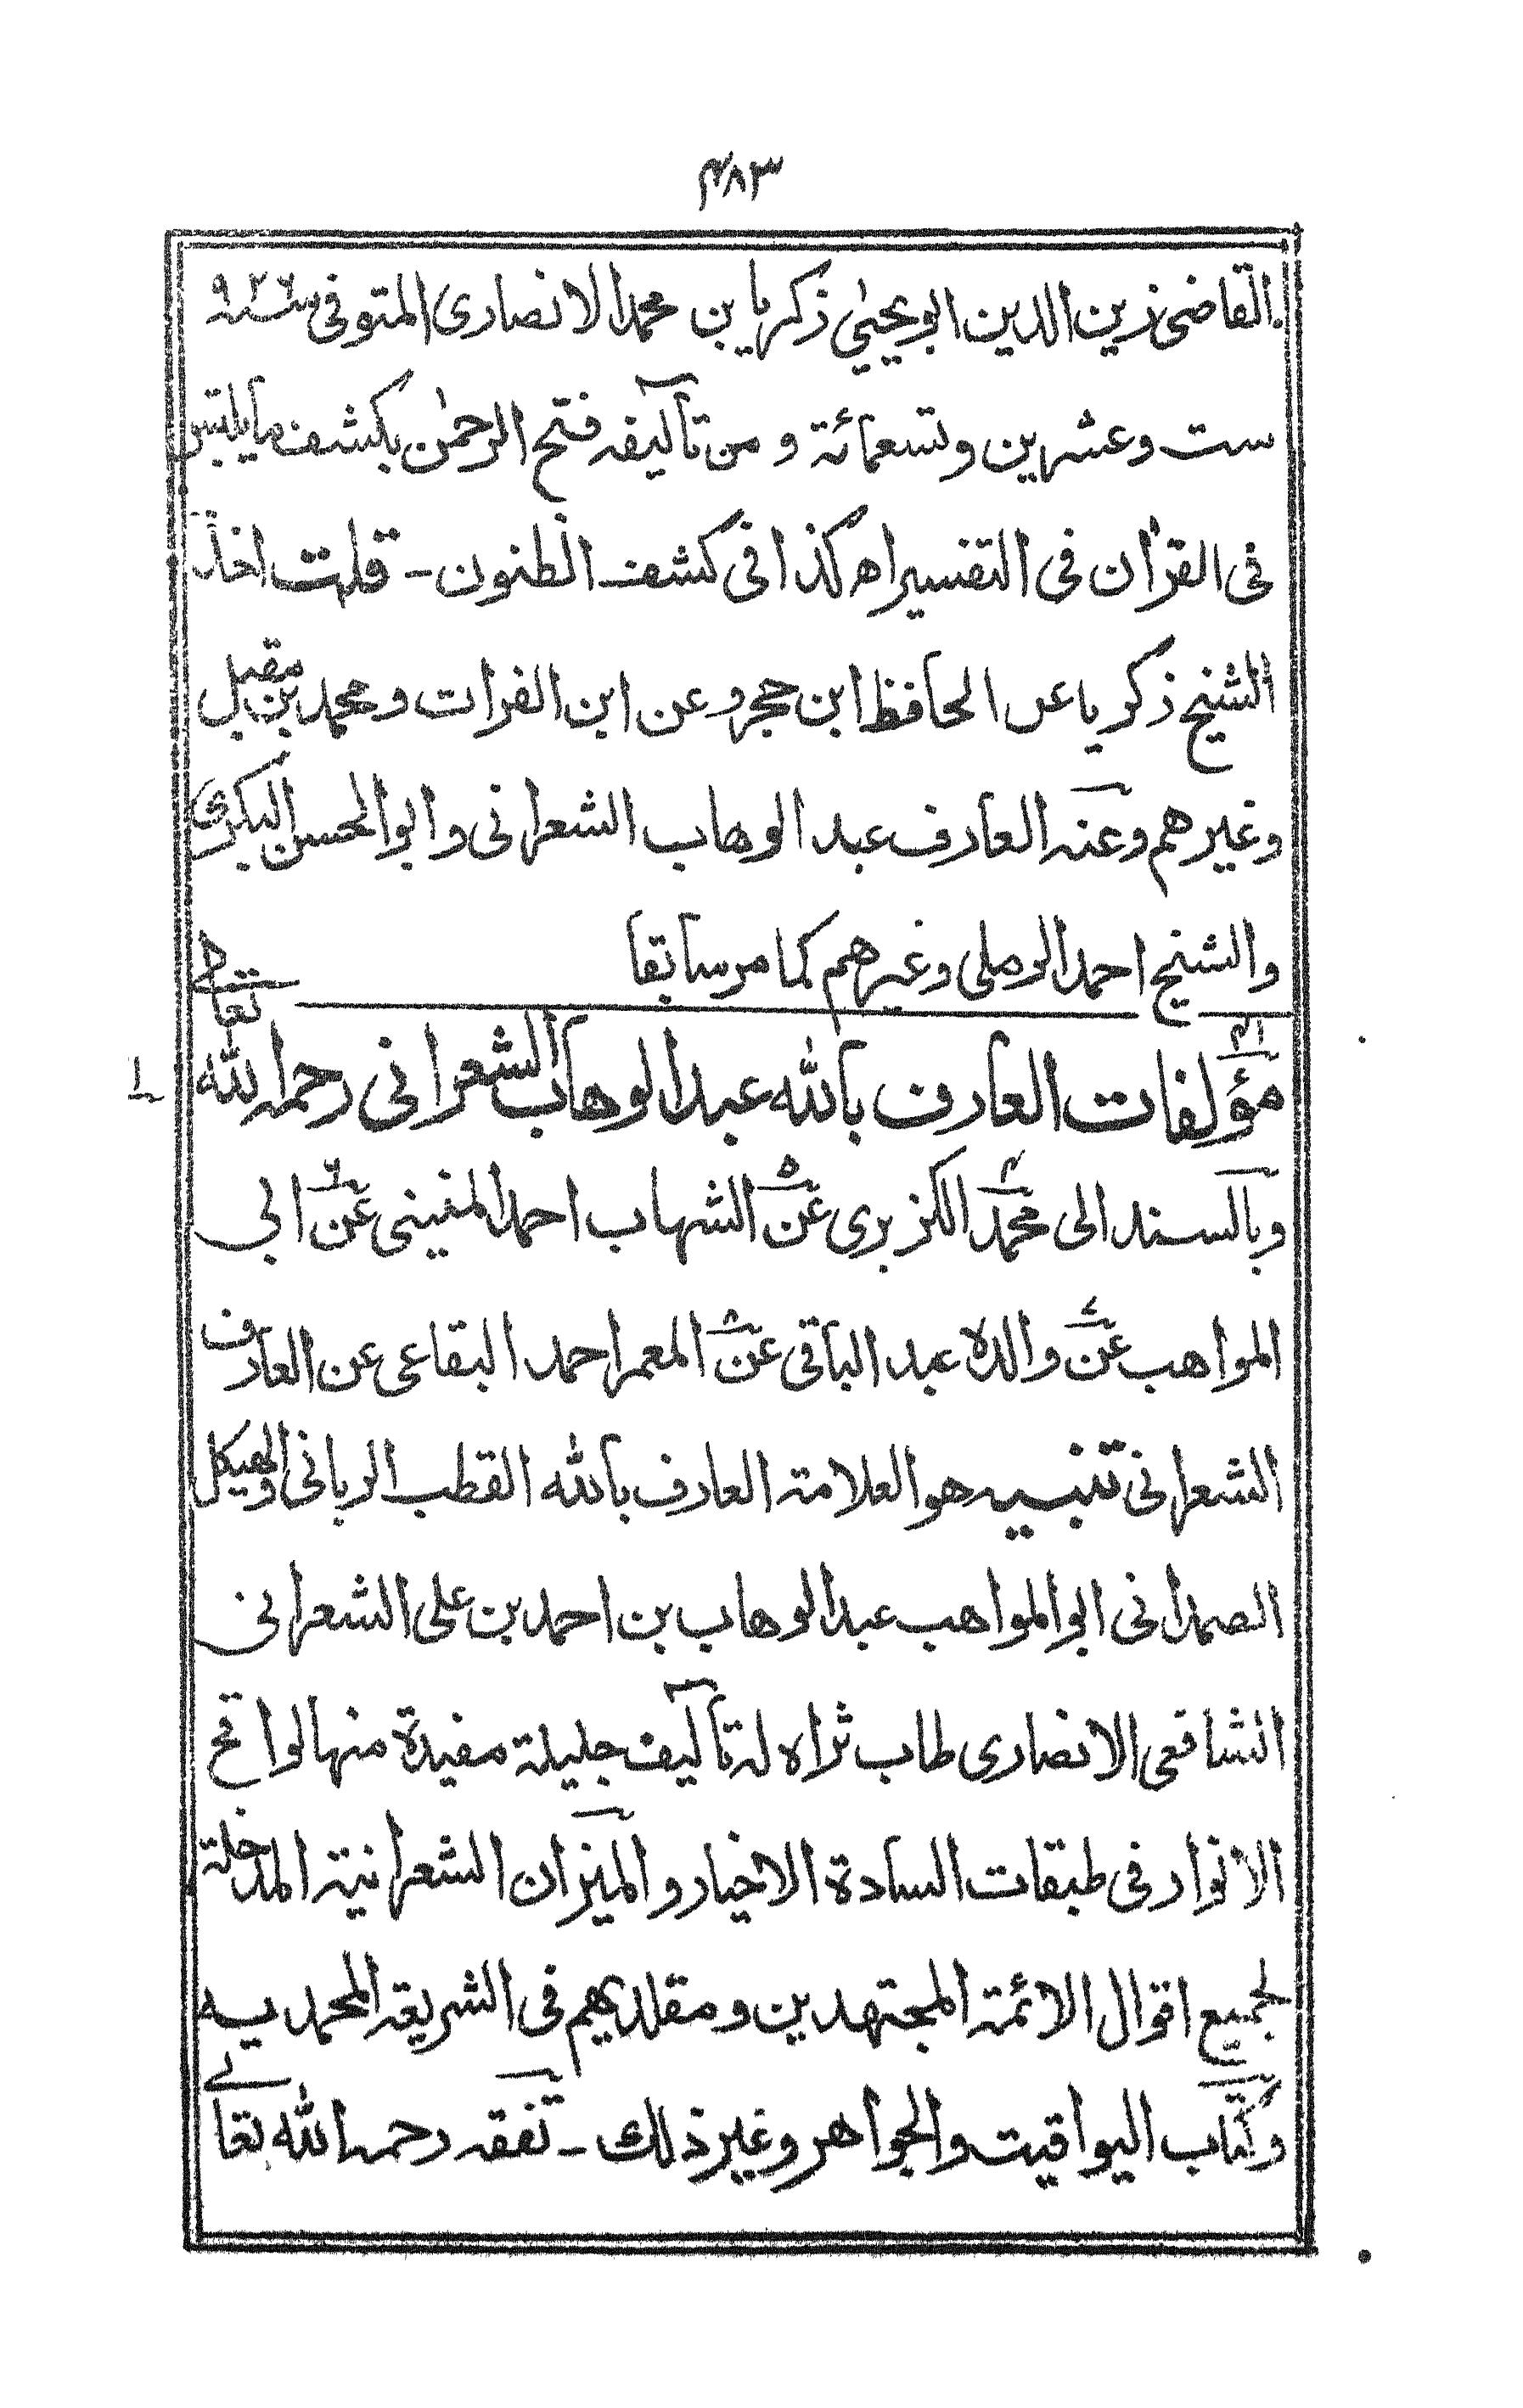 ۴۸۳
القاضی زین الدین ابو یحییٰ زکریا بن محمد الانصاری المتوفی سنۃ ۹۲۶
ست وعشرین وتسعمائة و من تآلیفه فتح الرحمٰن بکشف ما یلتبس
فی القراٰن فی التفسیر اھ کذا فی کشف الظنون ـ قلت اخذ
الشیخ زکریا عن الحافظ ابن حجر و عن ابن الفرات و محمد بن مقبل
وغیرهم وعنه العارف عبد الوهاب الشعرانی و ابو الحسن البکری
والشیخ احمد الرملی وغیرهم کما مر سابقا
مؤلفات العارف بالله عبد الوهاب الشعرانی رحمه الله تعالی
وبالسند الی محمد الکزبری عن الشهاب احمد المنینی عن ابی
المواهب عن والده عبد الباقی عن المعمر احمد البقاعی عن العارف
الشعرانی تنبیه هو العلامة العارف بالله القطب الربانی والهیکل
الصمدانی ابو المواهب عبد الوهاب بن احمد بن علی الشعرانی
الشافعی الانصاری طاب ثراه له تآلیف جلیلة مفیدة منها لواقح
الانوار فی طبقات السادة الاخیار و المیزان الشعرانیة المدخلة
لجمیع اقوال الائمة المجتهدین و مقلدیهم فی الشریعة المحمدیه
وکتاب الیواقیت والجواهر وغیر ذلك ـ تفقه رحمه الله تعالی